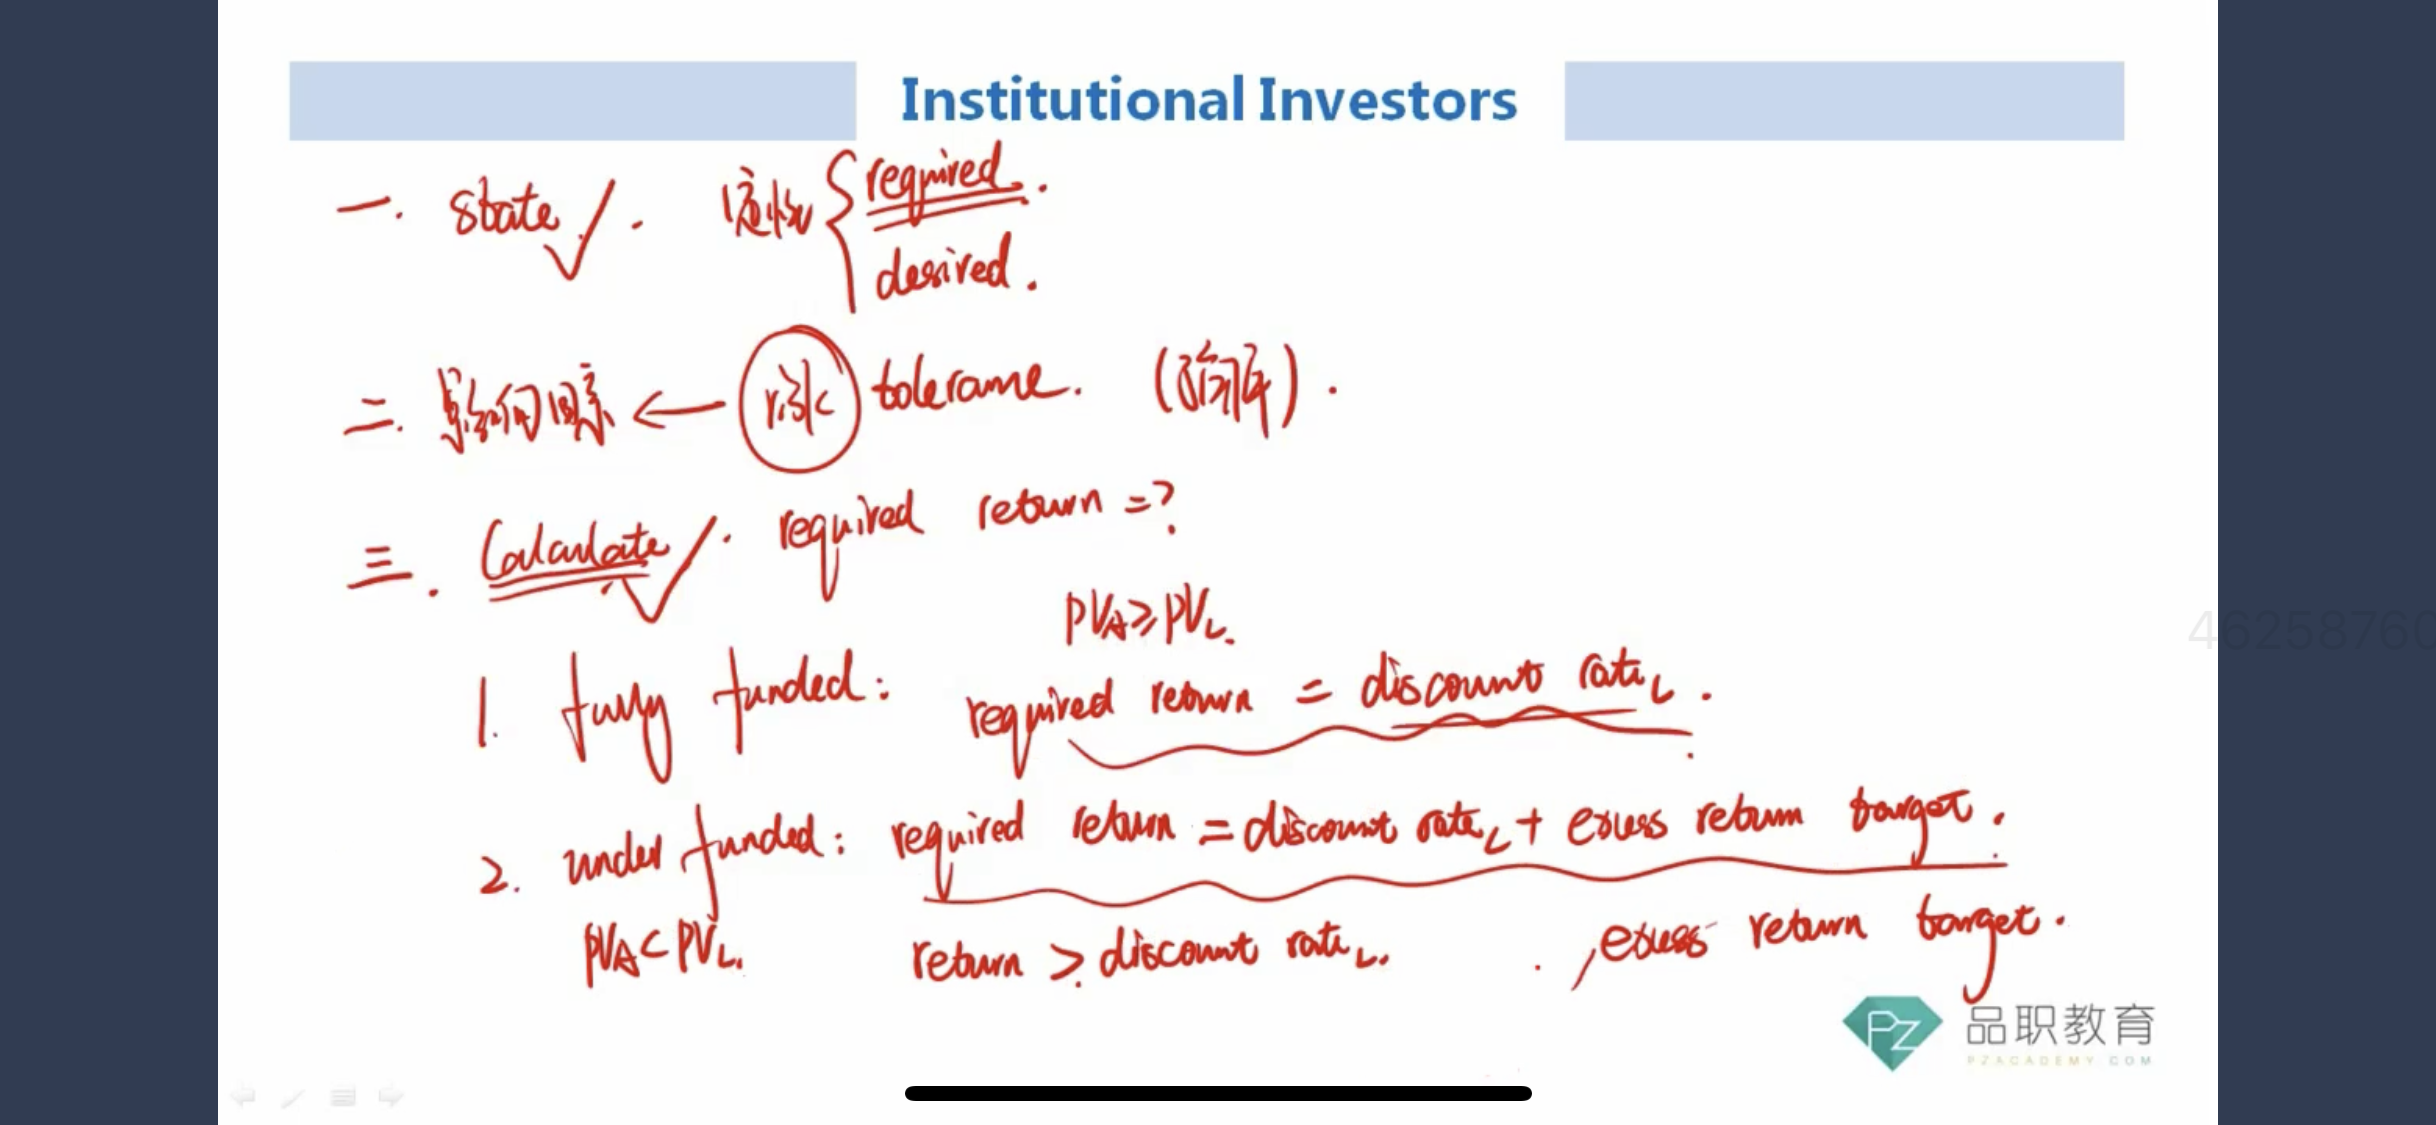 Institutional Investors
一. state. 定性 { required.
desired.
二. 影响因素 ← risk tolerance.
三. Calculate. required return =?
PVA ≥ PVL.
1. fully funded: required return = discount rateL.
2. under funded: required return = discount rateL + excess return target.
PVA < PVL. return > discount rateL. , excess return target.
PZ 品职教育
PZACADEMY.COM
4625876